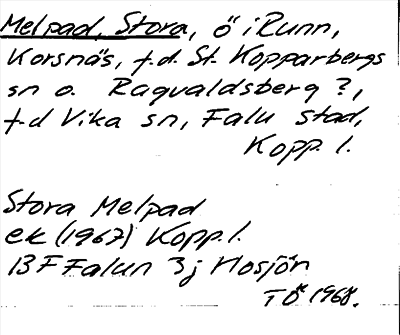 Melpad, Stora, ö i Runn,
Korsnäs, f.d. St. Kopparbergs
sn o. Ragvaldsberg ?,
f.d Vika sn, Falu stad,
Kopp. l.
Stora Melpad
ek (1967) Kopp. l.
13 F Falun 3 j Hosjön
TÖ 1968.